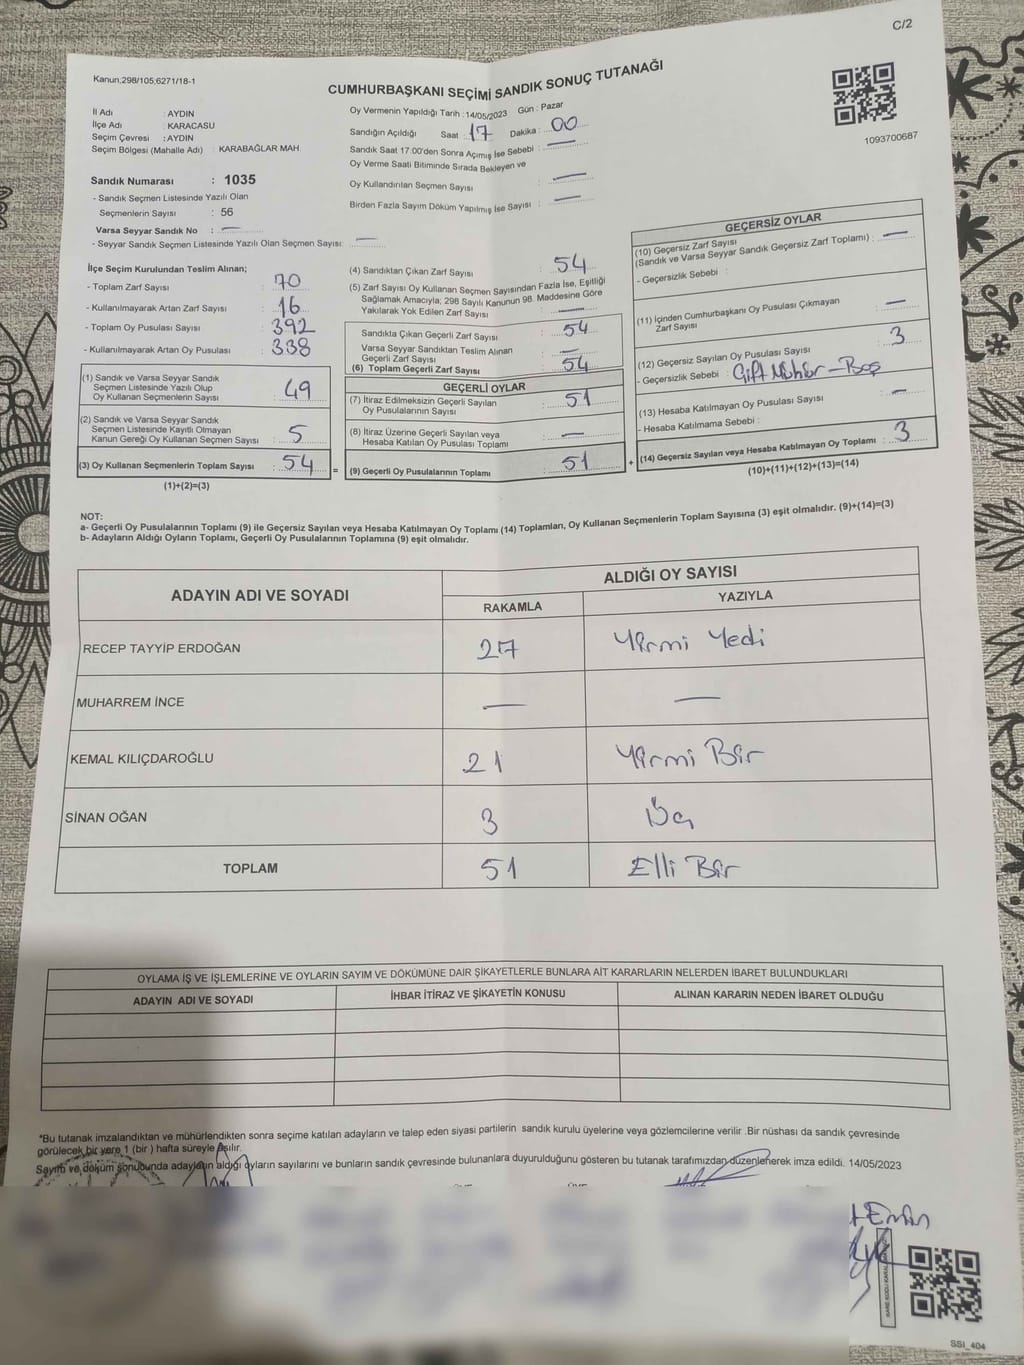 C/2
Kanun,298/105;6271/18-1
CUMHURBAŞKANI SEÇİMİ SANDIK SONUÇ TUTANAĞI
1093700687
İl Adı : AYDIN
İlçe Adı : KARACASU
Seçim Çevresi : AYDIN
Seçim Bölgesi (Mahalle Adı) : KARABAĞLAR MAH.
Sandık Numarası : 1035
- Sandık Seçmen Listesinde Yazılı Olan
Seçmenlerin Sayısı : 56
Varsa Seyyar Sandık No : —
- Seyyar Sandık Seçmen Listesinde Yazılı Olan Seçmen Sayısı: —
Oy Vermenin Yapıldığı Tarih : 14/05/2023 Gün : Pazar
Sandığın Açıldığı Saat : 17 Dakika : 00
Sandık Saat 17:00'den Sonra Açımış İse Sebebi : —
Oy Verme Saati Bitiminde Sırada Bekleyen ve
Oy Kullandırılan Seçmen Sayısı : —
Birden Fazla Sayım Döküm Yapılmış İse Sayısı : —
İlçe Seçim Kurulundan Teslim Alınan;
- Toplam Zarf Sayısı : 70
- Kullanılmayarak Artan Zarf Sayısı : 16
- Toplam Oy Pusulası Sayısı : 392
- Kullanılmayarak Artan Oy Pusulası : 338
(1) Sandık ve Varsa Seyyar Sandık
Seçmen Listesinde Yazılı Olup
Oy Kullanan Seçmenlerin Sayısı : 49
(2) Sandık ve Varsa Seyyar Sandık
Seçmen Listesinde Kayıtlı Olmayan
Kanun Gereği Oy Kullanan Seçmen Sayısı : 5
(3) Oy Kullanan Seçmenlerin Toplam Sayısı : 54 =
(1)+(2)=(3)
(4) Sandıktan Çıkan Zarf Sayısı : 54
(5) Zarf Sayısı Oy Kullanan Seçmen Sayısından Fazla İse, Eşitliği
Sağlamak Amacıyla; 298 Sayılı Kanunun 98. Maddesine Göre
Yakılarak Yok Edilen Zarf Sayısı : —
Sandıkta Çıkan Geçerli Zarf Sayısı : 54
Varsa Seyyar Sandıktan Teslim Alınan
Geçerli Zarf Sayısı : —
(6) Toplam Geçerli Zarf Sayısı : 54
GEÇERLİ OYLAR
(7) İtiraz Edilmeksizin Geçerli Sayılan
Oy Pusulalarının Sayısı : 51
(8) İtiraz Üzerine Geçerli Sayılan veya
Hesaba Katılan Oy Pusulası Toplamı : —
(9) Geçerli Oy Pusulalarının Toplamı : 51 +
GEÇERSİZ OYLAR
(10) Geçersiz Zarf Sayısı
(Sandık ve Varsa Seyyar Sandık Geçersiz Zarf Toplamı) : —
- Geçersizlik Sebebi :
(11) İçinden Cumhurbaşkanı Oy Pusulası Çıkmayan
Zarf Sayısı : —
(12) Geçersiz Sayılan Oy Pusulası Sayısı : 3
- Geçersizlik Sebebi : Çift Mühür – Boş
(13) Hesaba Katılmayan Oy Pusulası Sayısı : —
- Hesaba Katılmama Sebebi :
(14) Geçersiz Sayılan veya Hesaba Katılmayan Oy Toplamı : 3
(10)+(11)+(12)+(13)=(14)
NOT:
a- Geçerli Oy Pusulalarının Toplamı (9) ile Geçersiz Sayılan veya Hesaba Katılmayan Oy Toplamı (14) Toplamları, Oy Kullanan Seçmenlerin Toplam Sayısına (3) eşit olmalıdır. (9)+(14)=(3)
b- Adayların Aldığı Oyların Toplamı, Geçerli Oy Pusulalarının Toplamına (9) eşit olmalıdır.
ADAYIN ADI VE SOYADI ALDIĞI OY SAYISI
RAKAMLA YAZIYLA
RECEP TAYYİP ERDOĞAN 27 Yirmi Yedi
MUHARREM İNCE — —
KEMAL KILIÇDAROĞLU 21 Yirmi Bir
SİNAN OĞAN 3 Üç
TOPLAM 51 Elli Bir
OYLAMA İŞ VE İŞLEMLERİNE VE OYLARIN SAYIM VE DÖKÜMÜNE DAİR ŞİKAYETLERLE BUNLARA AİT KARARLARIN NELERDEN İBARET BULUNDUKLARI
ADAYIN ADI VE SOYADI İHBAR İTİRAZ VE ŞİKAYETİN KONUSU ALINAN KARARIN NEDEN İBARET OLDUĞU
*Bu tutanak imzalandıktan ve mühürlendikten sonra seçime katılan adayların ve talep eden siyasi partilerin sandık kurulu üyelerine veya gözlemcilerine verilir .Bir nüshası da sandık çevresinde
görülecek bir yere 1 (bir ) hafta süreyle asılır.
Sayım ve döküm sonucunda adayların aldığı oyların sayılarını ve bunların sandık çevresinde bulunanlara duyurulduğunu gösteren bu tutanak tarafımızdan düzenlenerek imza edildi. 14/05/2023
SSI_404